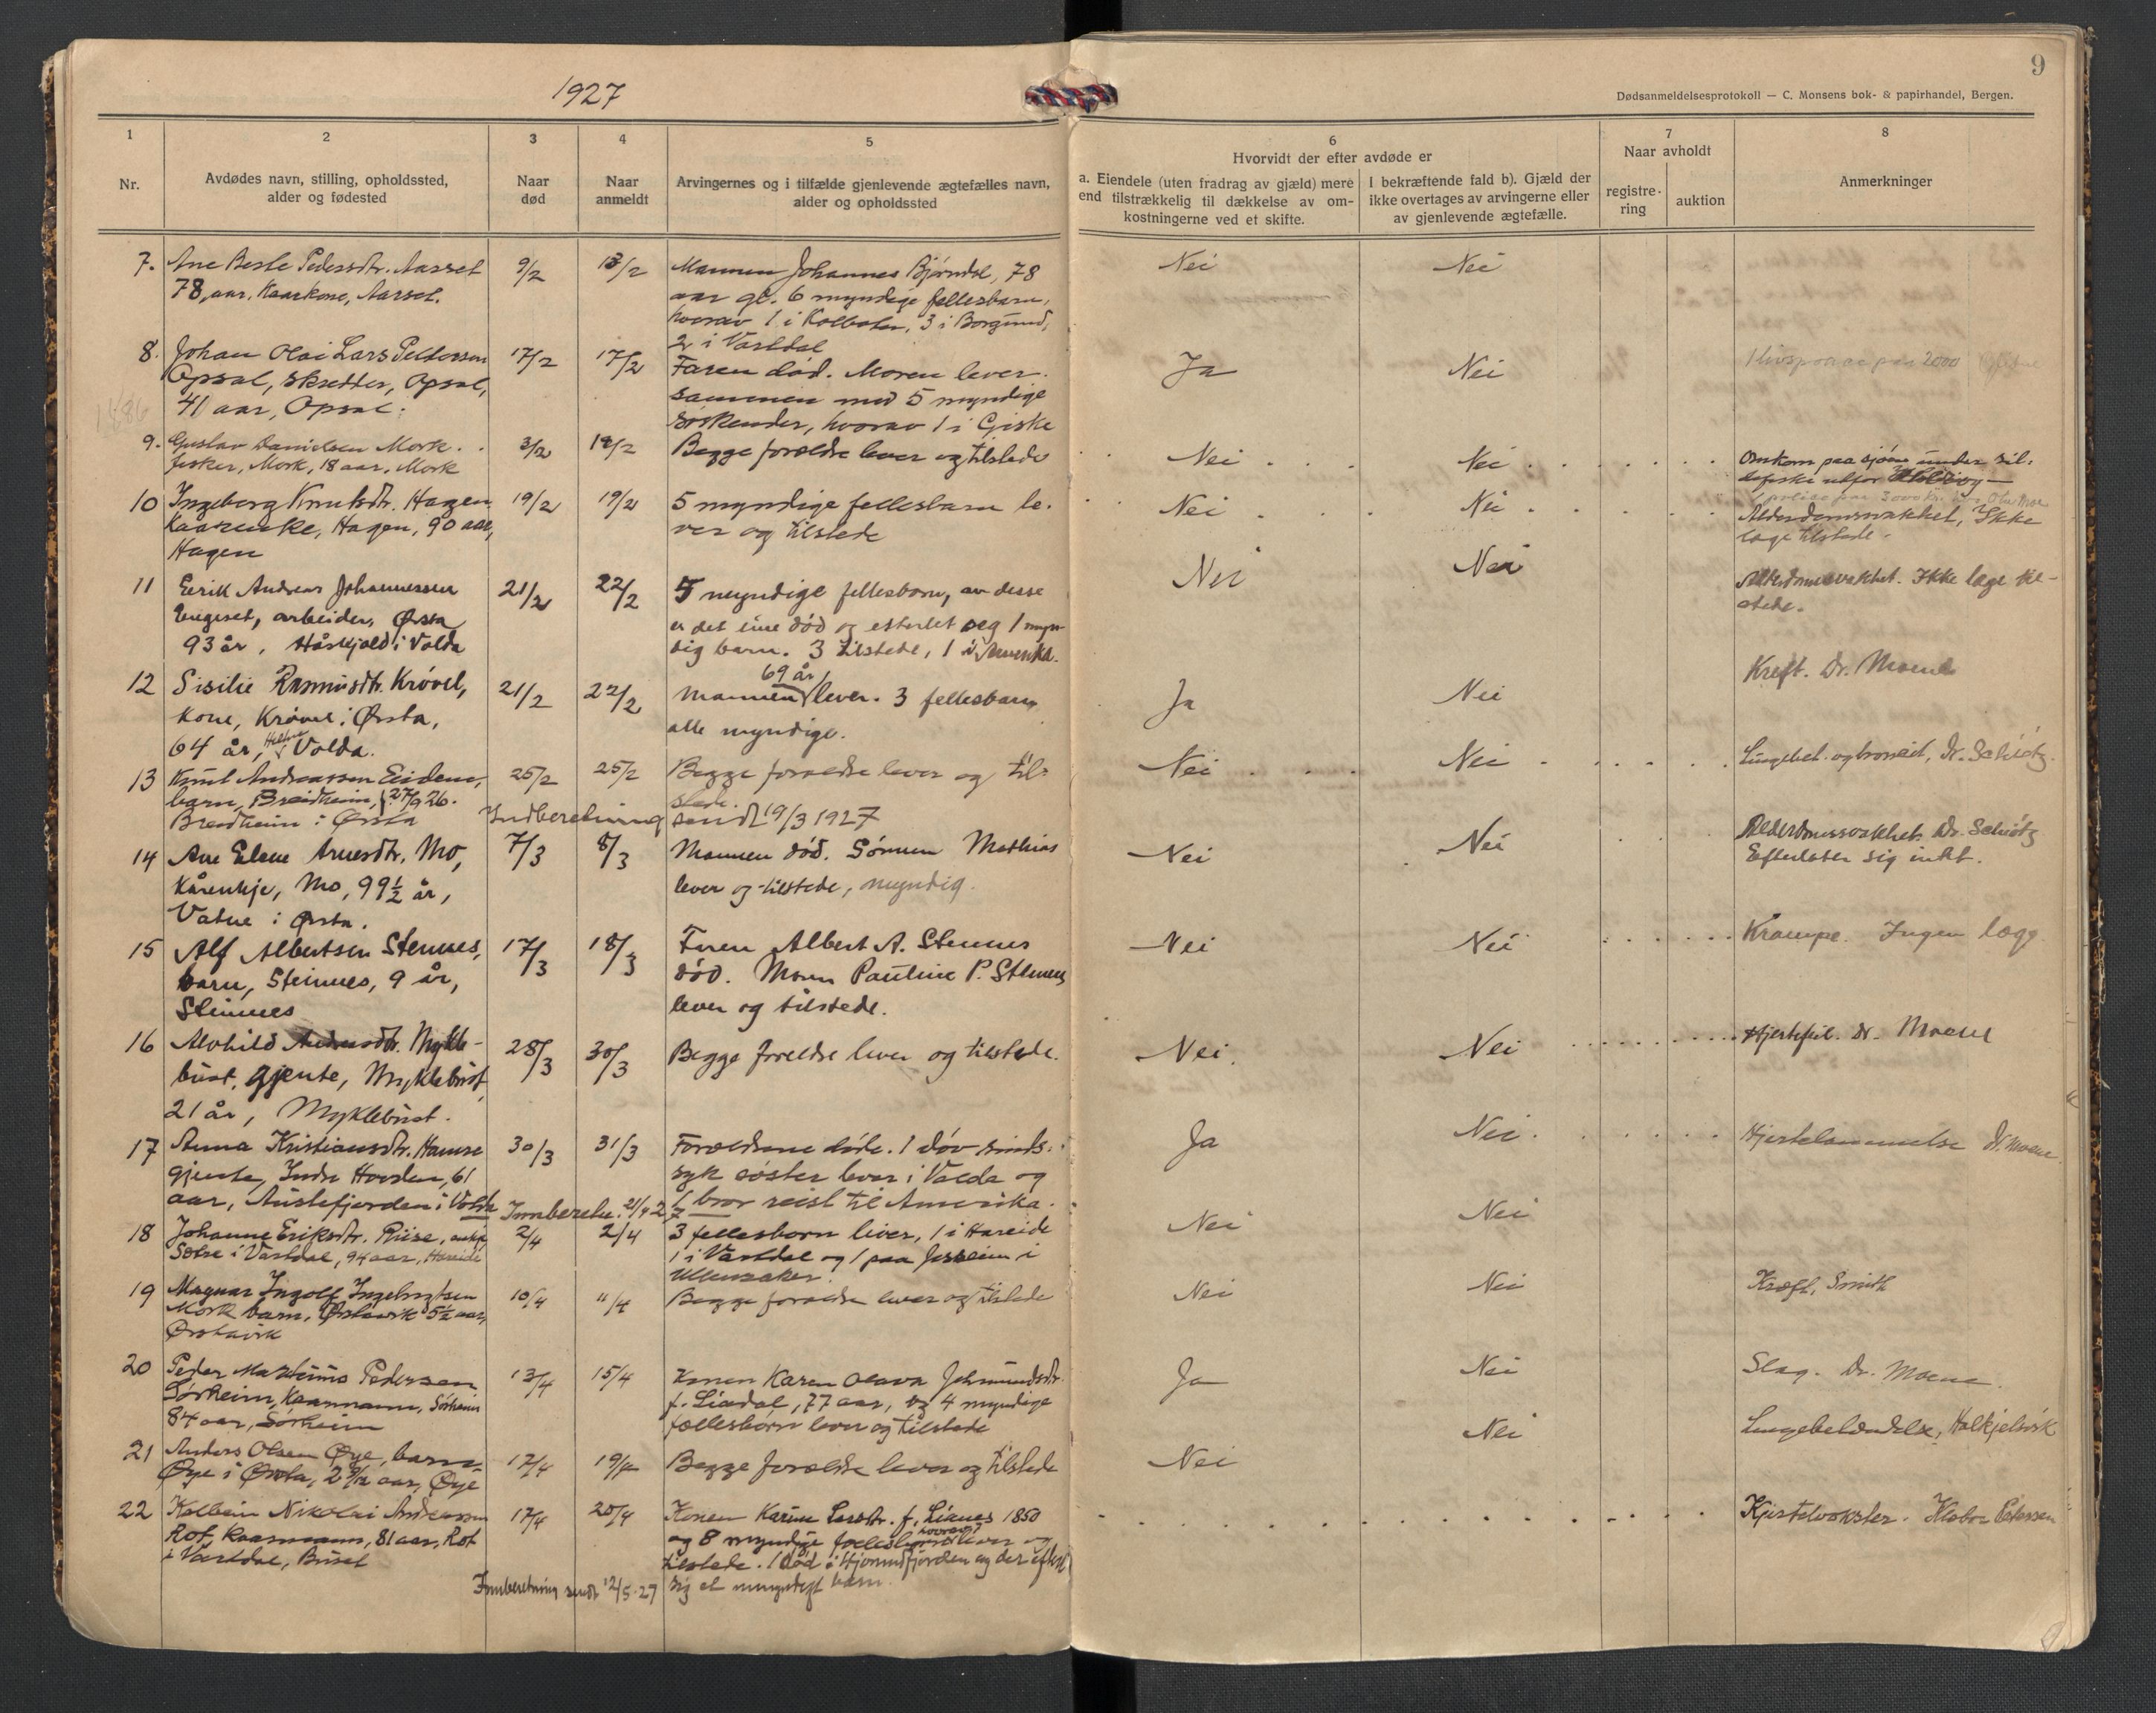 1927
9
Dødsanmeldelsesprotokoll — C. Monsens bok- & papirhandel, Bergen.
1
Nr.
2
Avdødes navn, stilling, opholdssted,
alder og fødested
3
Naar
død
4
Naar
anmeldt
5
Arvingernes og i tilfælde gjenlevende ægtefælles navn,
alder og opholdssted
6
Hvorvidt der efter avdøde er
a. Eiendele (uten fradrag av gjæld) mere
end tilstrækkelig til dækkelse av om-
kostningerne ved et skifte.
I bekræftende fald b). Gjæld der
ikke overtages av arvingerne eller
av gjenlevende ægtefælle.
7
Naar avholdt
registre-
ring
auktion
8
Anmerkninger
7. Ane Berte Pedersdtr. Aarset
78 aar, Kaarkone, Aarset.
9/2
13/2
Mannen Johannes Bjørndal, 78
aar gl. 6 myndige fellesbarn,
hvorav 1 i 3 i Borgund,
2 i Vartdal
Nei
Nei
8. Johan Olai Lars Pettersson
Opsal, skredder, Opsal,
41 aar, Opsal.
17/2
17/2
Faren død. Moren lever
sammen med 5 myndige
søskender, hvorav 1 i Giske
Ja
Nei
2000
9. Gustav Danielsen Mork
fisker, Mork, 18 aar, Mork
3/2
18/2
Begge forældre lever og tilstede
Nei
Nei
Omkom paa sjøen under sil-
defiske utfor
3000 kr.
10 Ingeborg Knutsdtr. Hagen
Kaarenke, Hagen, 90 aar,
Hagen
19/2
19/2
5 myndige fellesbarn le-
ver og tilstede
Nei
Nei
Alderdomssvakhet, Ikke
læge tilstede.
11 Eirik Andreas Johannessen
Engeset, arbeider, Ørsta
93 år, Håskjold i Volda
21/2
22/2
5 myndige fellesborn, av desse
er det eine død og etterlet seg 1 myn-
dig barn. 3 tilstede, 1 i Amerika.
Nei
Nei
Alderdomssvakhet. Ikke læge til-
stede.
12 Sisilie Rasmusdtr. Krøvel,
kone, Krøvel i Ørsta,
64 år, Volda.
21/2
22/2
69 år
Mannen lever. 3 fellesbarn
alle myndige.
Ja
Nei
Kreft. Dr. Moene
13 Knut Andreassen Eidem,
barn, Breidheim, 27/9 26.
Breidheim i Ørsta
25/2
25/2
Begge foreldre lever og til-
stede.
Nei
Nei
Lungebet. og bronkit, Dr. Schiøtz.
Indberetning sendt 19/3 1927
14 Ane Elene Arnesdtr. Mo,
Kårenkje, Mo, 99 1/2 år,
Vatne i Ørsta.
7/3
8/3
Mannen død. Sønnen Mathias
lever og tilstede, myndig.
Nei
Nei
Alderdomssvakhet. Dr. Schiøtz
Efterlater sig intet.
15 Alf Albertsen Stennes,
barn, Steinnes, 9 år,
Steinnes
17/3
18/3
Faren Albert A. Stennes
død. Moren Pauline P. Stennes
lever og tilstede.
Nei
Nei
Krampe. Ingen læge.
16 Alvhild Andersdtr. Mykle-
bust, gjente, Myklebust,
21 år, Myklebust.
28/3
30/3
Begge foreldre lever og tilstede.
Nei.
Nei
Hjertefeil. Dr. Moene
17 Anna Kristiansdtr. Hamre
gjente, Indre Hovden, 61
aar, Austefjorden i Volda
30/3
31/3
Forældrene døde. 1 døv sinds-
syk søster lever i Volda og
1 bror reist til Amerika.
Ja
Nei
Hjertelammelse Dr. Moene.
Innberetn. 21/4 27
18 Johanne Eriksdtr. Riise, enkje
Sætre i Vartdal, 94 aar, Hareide
2/4
2/4
3 fellesborn lever, 1 i Hareide
1 i Vartdal og 1 paa Jessheim i
Ullensaker.
Nei
Nei
19 Magnar Ingolf Ingebrigtsen
Mork barn, Ørstavik 5 1/2 aar,
Ørstavik
10/4
11/4
Begge forældre lever og tilstede
Nei
Nei
Kræft, Smith
20 Peder Martinus Pedersen
Sørheim, Kaarmann, Sørheim
84 aar, Sørheim
13/4
15/4
Konen Karen Olava Jetmundsdtr.
f. Liadal, 77 aar, og 4 myndige
fællesbørn lever og tilstede
Ja
Nei
Slag. Dr. Moene.
21 Anders Olsen Øye, barn
Øye i Ørsta, 2 9/12 aar, Øye
17/4
19/4
Begge forældre lever og tilstede
Nei
Nei
Lungebetændelse, Halkjelsvik
22 Kolbein Nikolai Andreassen
Rot, Kaarmann, 81 aar, Rot
i Vartdal, Buset
17/4
20/4
Konen Karine Larsdtr. f. Lianes 1850
og 8 myndige fællesbørn lever og
tilstede. 1 død i Hjørundfjorden og der efterl.
sig et umyndigt barn.
Innberetning sendt 12/5-27